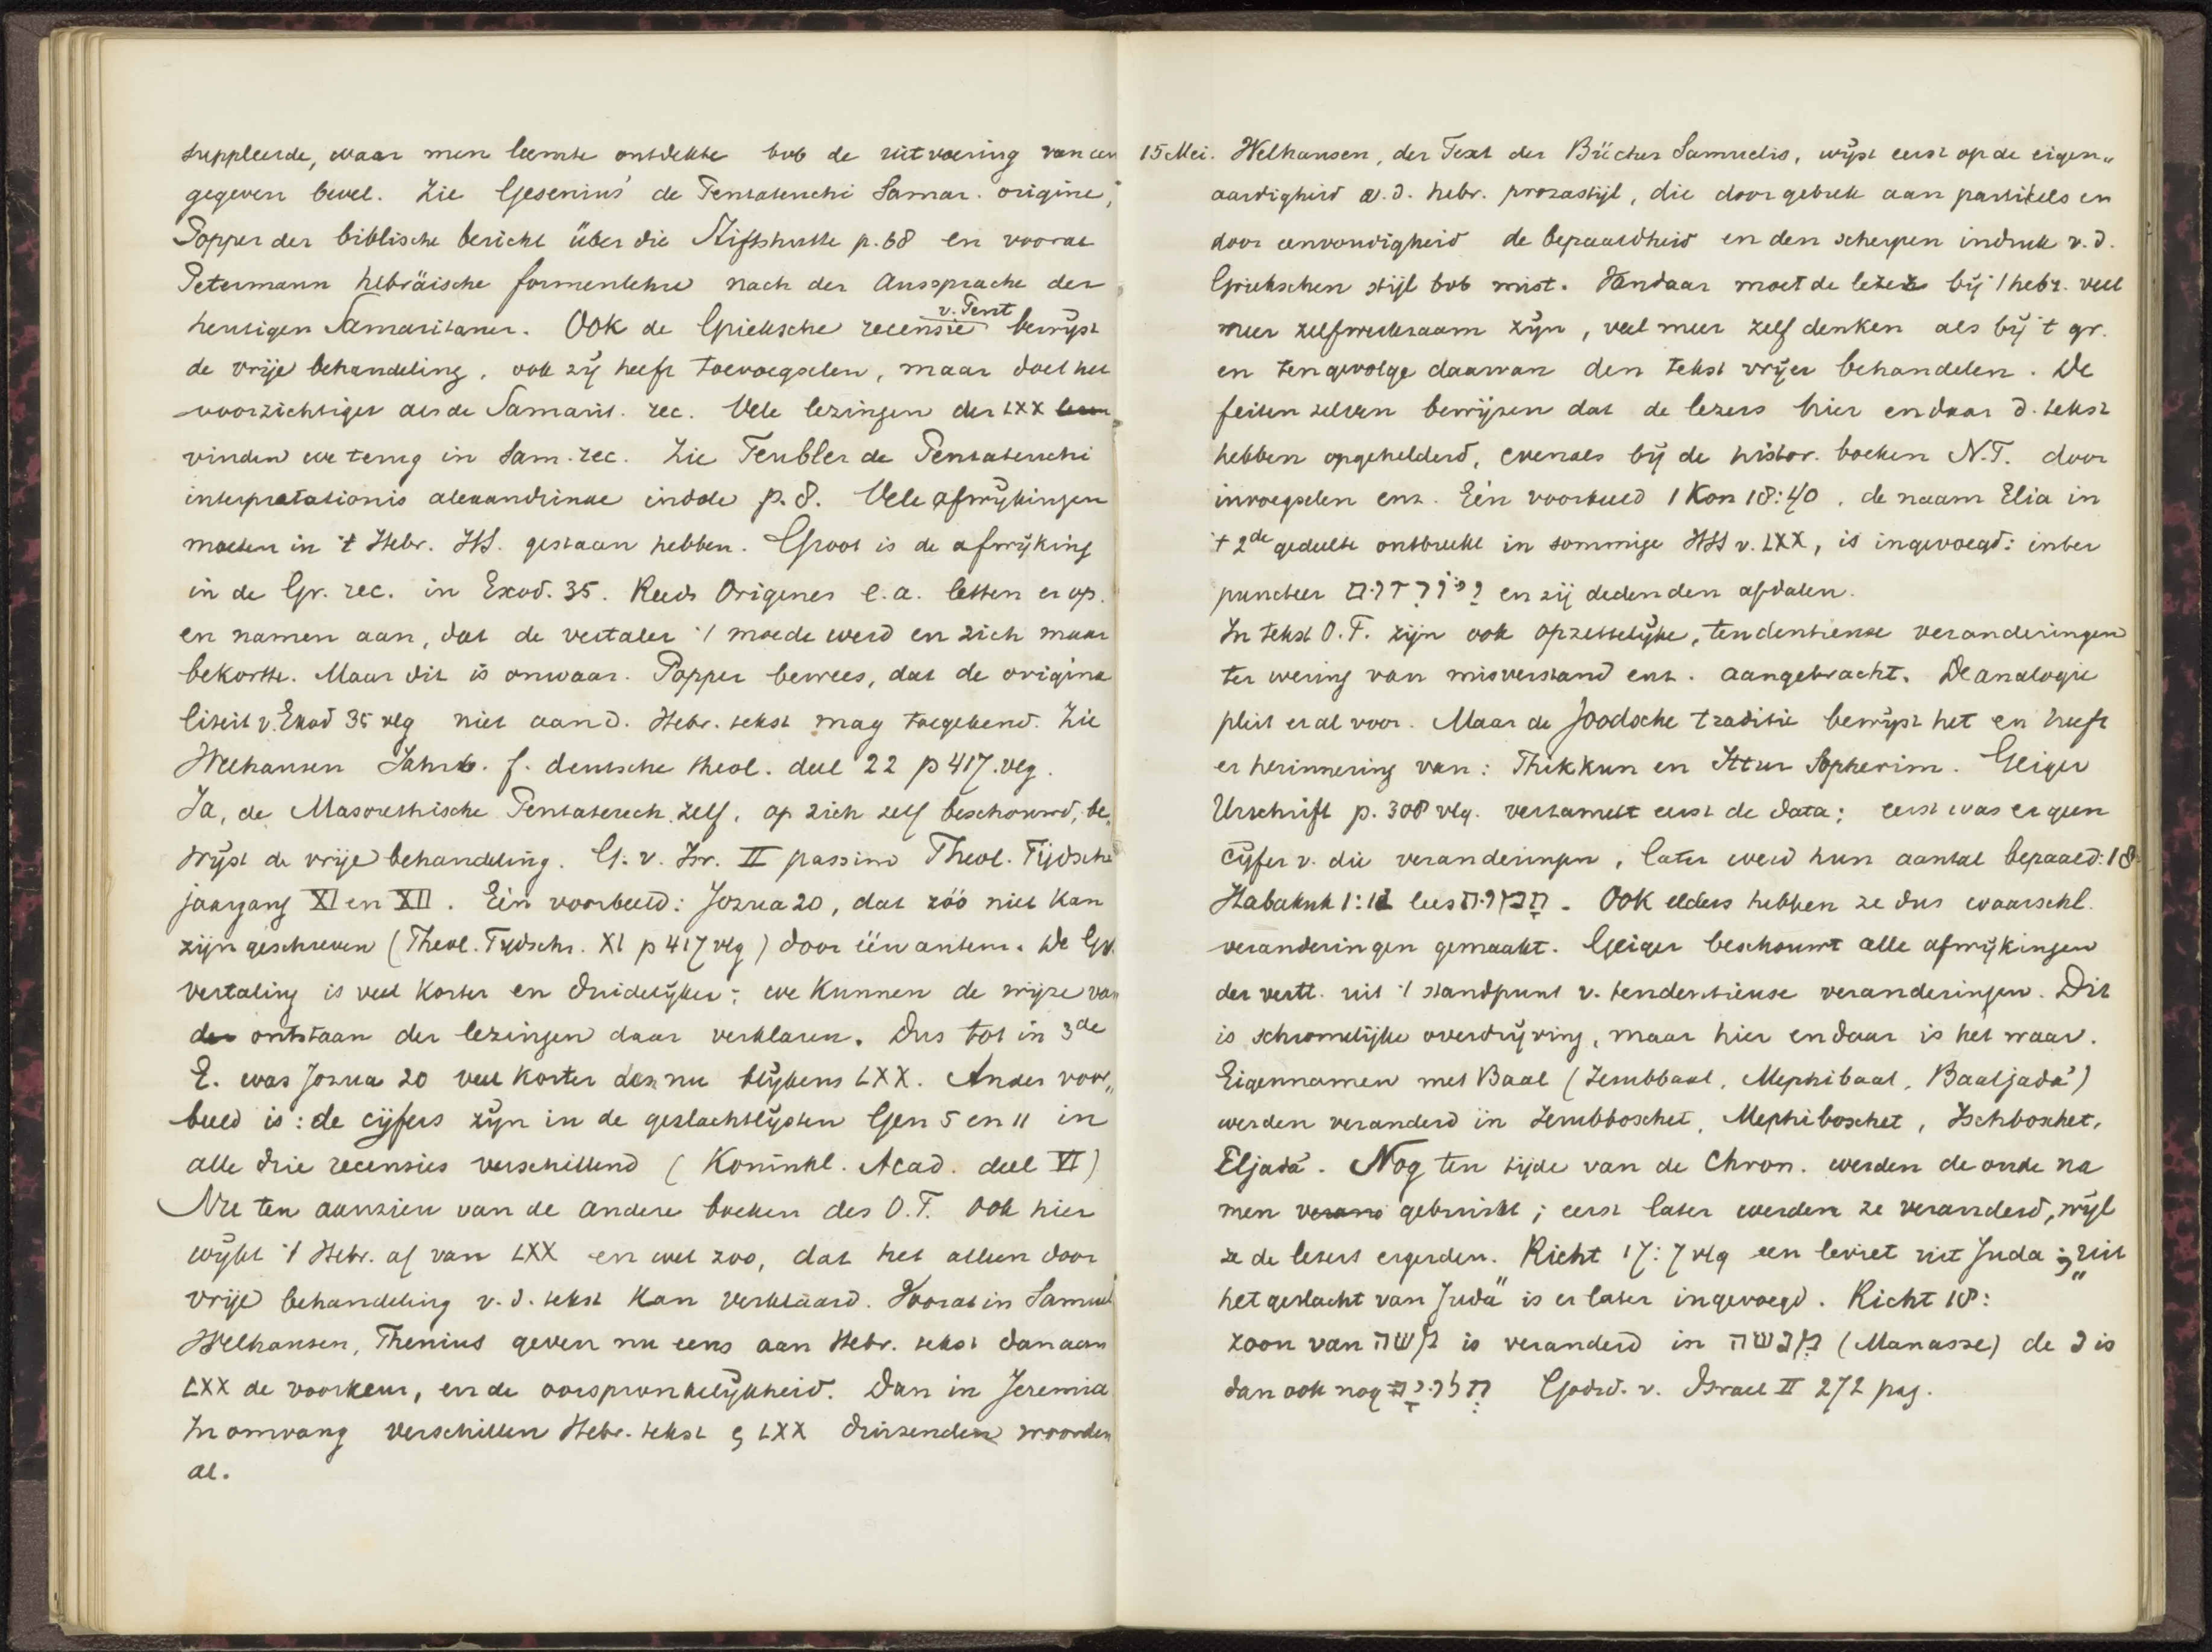 suppleerde, waar men leemte ontdekte bvb de uitvoering van een
gegeven bevel. Zie Gesenius' de Pentateuchi Samar. origine,
Popper der biblische bericht über die Stiftshutte p. 68 en vooral
Petermann hebräische formenlehre nach der Aussprache der
heutigen Samaritaner. Ook de Grieksche recensie v. Pent bewijst
de vrije behandeling, ook zij heeft toevoegselen, maar doet het
voorzichtiger als de Samarit. rec. Vele lezingen der LXX
vinden we terug in Sam. rec. Zie Teubler de Pentateuchi
interpretationis alexandrinae indole p. 8. Vele afwijkingen
moeten in 't Hebr. HS. gestaan hebben. Groot is de afwijking
in de Gr. rec. in Exod. 35. Reeds Origenes e.a. letten er op.
en namen aan, dat de vertaler 't moede werd en zich maar
bekortte. Maar dit is onwaar. Popper bewees, dat de origina
liteit v. Exod 35 vlg niet aan d. Hebr. tekst mag toegekend. Zie
Welhausen Jahrb. f. deutsche theol. deel 22 p 417. vlg.
Ja, de Masorethische Pentateuch zelf, op zich zelf beschouwd, be„
wijst de vrije behandeling. G. v. Isr. II passim Theol. Tijdschr
jaargang XI en XII. Eén voorbeeld: Jozua 20, dat zóó niet kan
zijn geschreven (Theol. Tijdschr. XI p 417 vlg) door één auteur. De Gr.
vertaling is veel korter en duidelijker; we kunnen de wijze van
ontstaan der lezingen daar verklaren. Dus tot in 3de
E. was Jozua 20 veel korter dan nu blijkens LXX. Ander voor„
beeld is: de cijfers zijn in de geslachtlijsten Gen 5 en 11 in
alle drie recensies verschillend (Koninkl. Acad. deel VI)
Nu ten aanzien van de andere boeken des O.T. Ook hier
wijkt 't Hebr. af van LXX en wel zoo, dat het alleen door
vrije behandeling v. d. tekst kan verklaard. Vooral in Samuel
Welhausen, Thenius geven nu eens aan Hebr. tekst dan aan
LXX de voorkeur, en de oorspronkelijkheid. Dan in Jeremia
In omvang verschillen Hebr. tekst & LXX duizenden woorden
al.
15 Mei. Welhausen, der Text der Bücher Samuelis, wijst eerst op de eigen„
aardigheid v. d. hebr. prozastijl, die door gebrek aan partikels en
door eenvoudigheid de bepaaldheid en den scherpen indruk v. d.
Griekschen stijl bvb mist. Vandaar moet de lezer bij 't hebr. veel
meer zelfwerkzaam zijn, veel meer zelf denken als bij 't gr.
en tengevolge daarvan den tekst vrijer behandelen. De
feiten zelven bewijzen dat de lezers hier en daar d. tekst
hebben opgehelderd, evenals bij de histor. boeken N.T. door
invoegselen enz. Eén voorbeeld 1 Kon 18:40, de naam Elia in
't 2de gedeelte ontbreekt in sommige HSS v. LXX, is ingevoegd: inter
puncteer en zij deden den afdalen.
In tekst O.T. zijn ook opzettelijke, tendentieuse veranderingen
ter wering van misverstand enz. aangebracht. De analogie
pleit er al voor. Maar de Joodsche traditie bewijst het en heeft
er herinnering van: Thikkun en Ittur Sopherim. Geiger
Urschrift p. 308 vlg. verzamelt eerst de data; eerst was er geen
cijfer v. die veranderingen, later werd hun aantal bepaald: 18
Habakuk 1:12 lees תמות. Ook elders hebben ze dus waarschl.
veranderingen gemaakt. Geiger beschouwt alle afwijkingen
der vertt. uit 't standpunt v. tendentieuse veranderingen. Dit
is schromelijke overdrijving, maar hier en daar is het waar.
Eigennamen met Baal (Jerubbaal, Mephibaal, Baaljada')
werden veranderd in Jerubboschet, Mephiboschet, Ischboschet,
Eljada'. Nog ten tijde van de Chron. werden de oude na
men gebruikt; eerst later werden ze veranderd, wijl
ze de lezers ergerden. Richt 17:7 vlg een leviet uit Juda; „uit
het geslacht van Juda" is er later ingevoegd. Richt 18:
zoon van משה is veranderd in מנשה (Manasse) de נ is
dan ook nog תלויה Godsd. v. Israel II 272 pag.